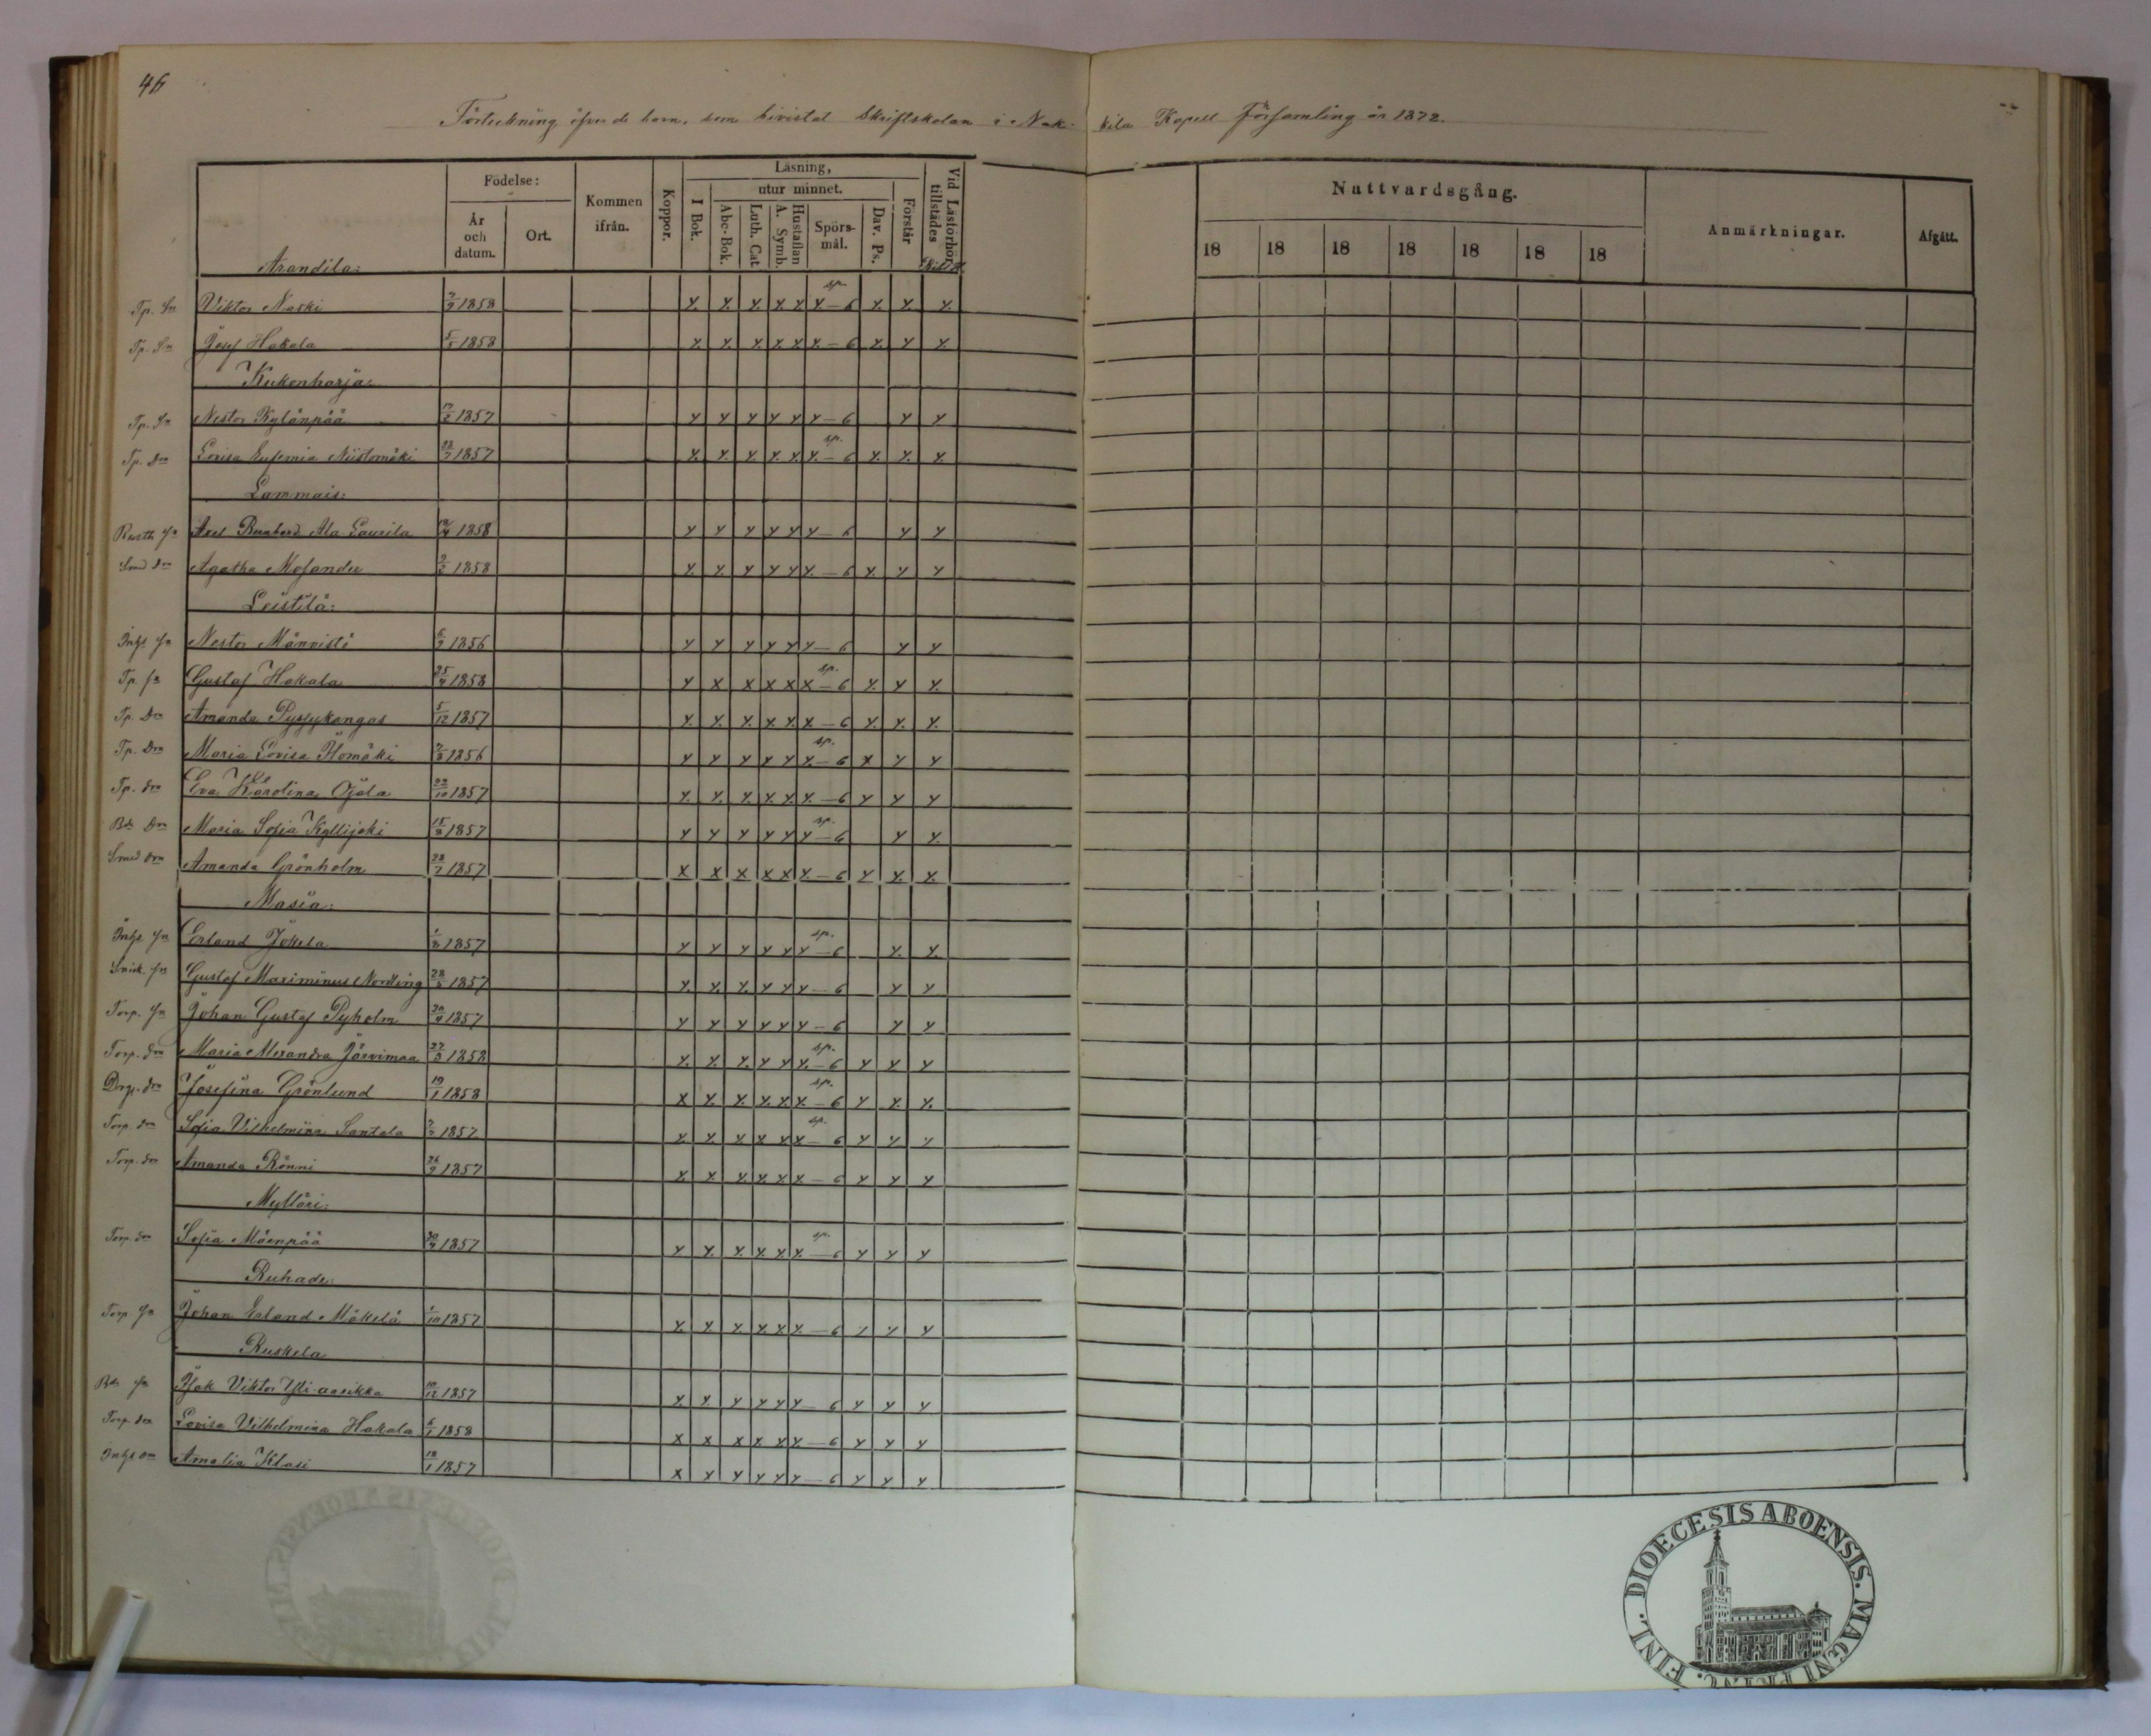 46
Förteckning öfver de barn, som bivistat Skriftskolan i Nak-
kila Kapell församling år 1872.
Födelse:
År och datum.
Ort.
Kommen ifrån.
Koppor.
Läsning,
I Bok.
utur minnet.
Abc-Bok.
Luth. Cat.
Hustaflan A. Symb.
Spörsmål.
Dav. Ps.
Förstår
Vid Läsförhör tillstädes
Nattvardsgång.
18 18 18 18 18 18 18
Anmärkningar.
Afgått.
Arandila:
Tp. sn Viktor Naski 7/9 1858 x x x x x x-6 sp. x x x
Tp. Sn Josef Hakala 5/5 1858 x x x x x x-6 x x x
Kukonharja:
Tp. Sn Nestor Kylänpää 17/2 1857 x x x x x x-6 x x
Tp. dr Lovisa Eufemia Niistomäki 28/7 1857 x x x x x x-6 sp. x x x
Lammais:
Rusth sn Axel Bernhard Ala-Laurila 1858 x x x x x x-6 x x
Smd dr Agatha Mosander 9/2 1858 x x x x x x-6 x x x
Leistilä:
Inhs sn Nestor Männistö 6/9 1856 x x x x x x-6 x x
Tp. sn Gustaf Hakala 25/4 1858 x x x x x x-6 sp. x x x
Tp. Dr Amanda Pyssykangas 5/12 1857 x x x x x x-6 x x x
Tp. Dr Maria Lovisa Ylomäki 7/3 1856 x x x x x x-6 sp. x x x
Tp. dr Eva Karolina Ojala 22/10 1857 x x x x x x-6 x x x
Bds Dr Maria Sofia Kyllijoki 15/8 1857 x x x x x x-6 sp. x x
Smed dr Amanda Grönholm 28/7 1857 x x x x x x-6 x x x
Masia:
Inhs sn Erland Jokela 1/8 1857 x x x x x x-6 sp. x x
Snick. sn Gustaf Maximinus Nordling 28/5 1857 x x x x x x-6 x x
Torp. sn Johan Gustaf Pyholm 20/9 1857 x x x x x x-6 x x
Torp. dr Maria Alexandra Järvimaa 27/3 1858 x x x x x x-6 sp. x x x
dr Josefina Grönlund 19/1 1858 x x x x x x-6 sp. x x x
Torp. dr Sofia Vilhelmina Santala 1857 x x x x x x-6 sp. x x x
Torp. dr Amanda Rönni 26/9 1857 x x x x x x-6 x x x
Torp. dr Sofia Mäenpää 30/4 1857 x x x x x x-6 sp. x x x
Ruhade:
Torp. sn Johan Erland Mäkelä 1/10 1857 x x x x x x-6 x x x
Ruskela
Bds sn Isak Viktor Yli-aasikka 10/12 1857 x x x x x x-6 x x x
Torp. dr Lovisa Vilhelmina Hakala 6/1 1858 x x x x x x-6 x x x
Inhs dr Amalia Klasi 18/1 1857 x x x x x x-6 x x x
FINL. DIOECESIS ABOENSIS. MAGNI PRINC.